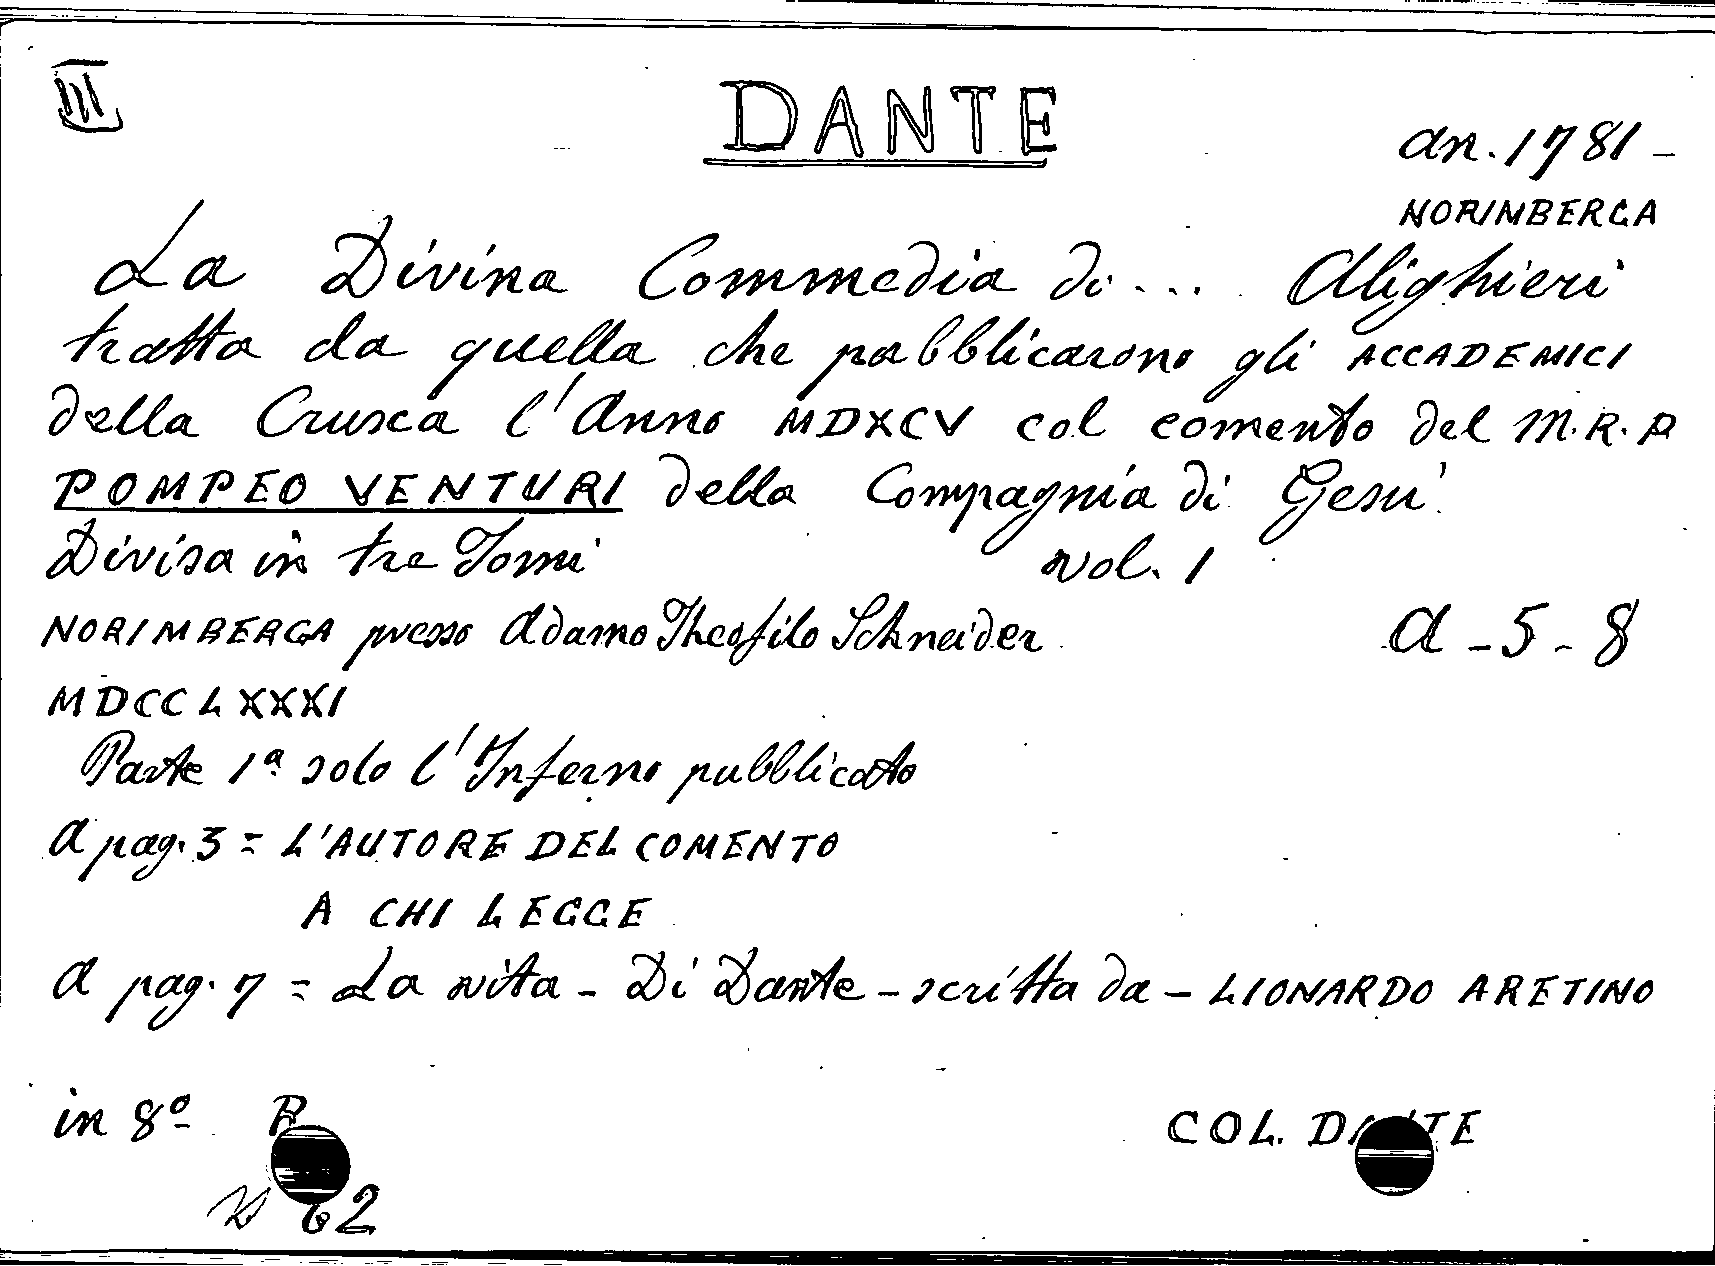 III
DANTE
an. 1781 -
NORIMBERGA
La Divina Commedia di ... Alighieri
tratta da quella che pubblicarono gli ACCADEMICI
della Crusca l'Anno MDXCV col comento del M.R.P
POMPEO VENTURI della Compagnia di Gesu'
Divisa in tre Tomi vol. 1
NORIMBERGA presso Adamo Theofilo Schneider A - 5 - 8
MDCCLXXXI
Parte 1ª solo l'Inferno pubblicato
A pag. 3 = L'AUTORE DEL COMENTO
A CHI LEGGE
A pag. 7 = La vita - Di Dante - scritta da - LIONARDO ARETINO
in 8º R COL. DANTE
62